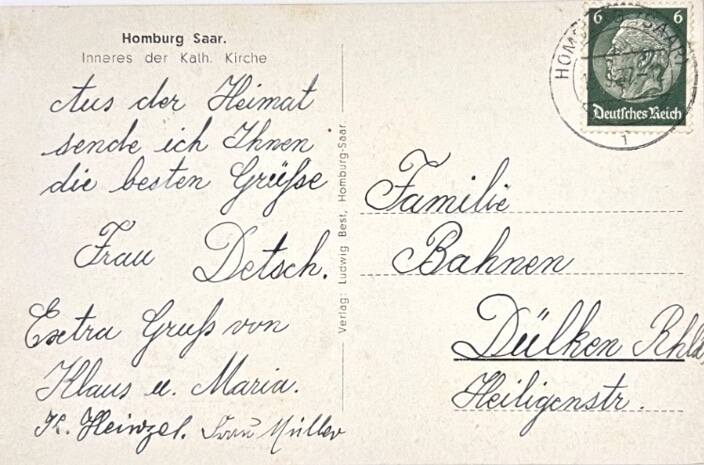 Homburg Saar.
Inneres der Kath. Kirche
Aus der Heimat
sende ich Ihnen
die besten Grüße
Frau Detsch.
Extra Gruß von
Klaus u. Maria.
K. Heinzel. Frau Müller
Verlag: Ludwig Best, Homburg-Saar.
6 6
Deutsches Reich
Familie
Bahnen
Dülken Rhld
Heiligenstr.